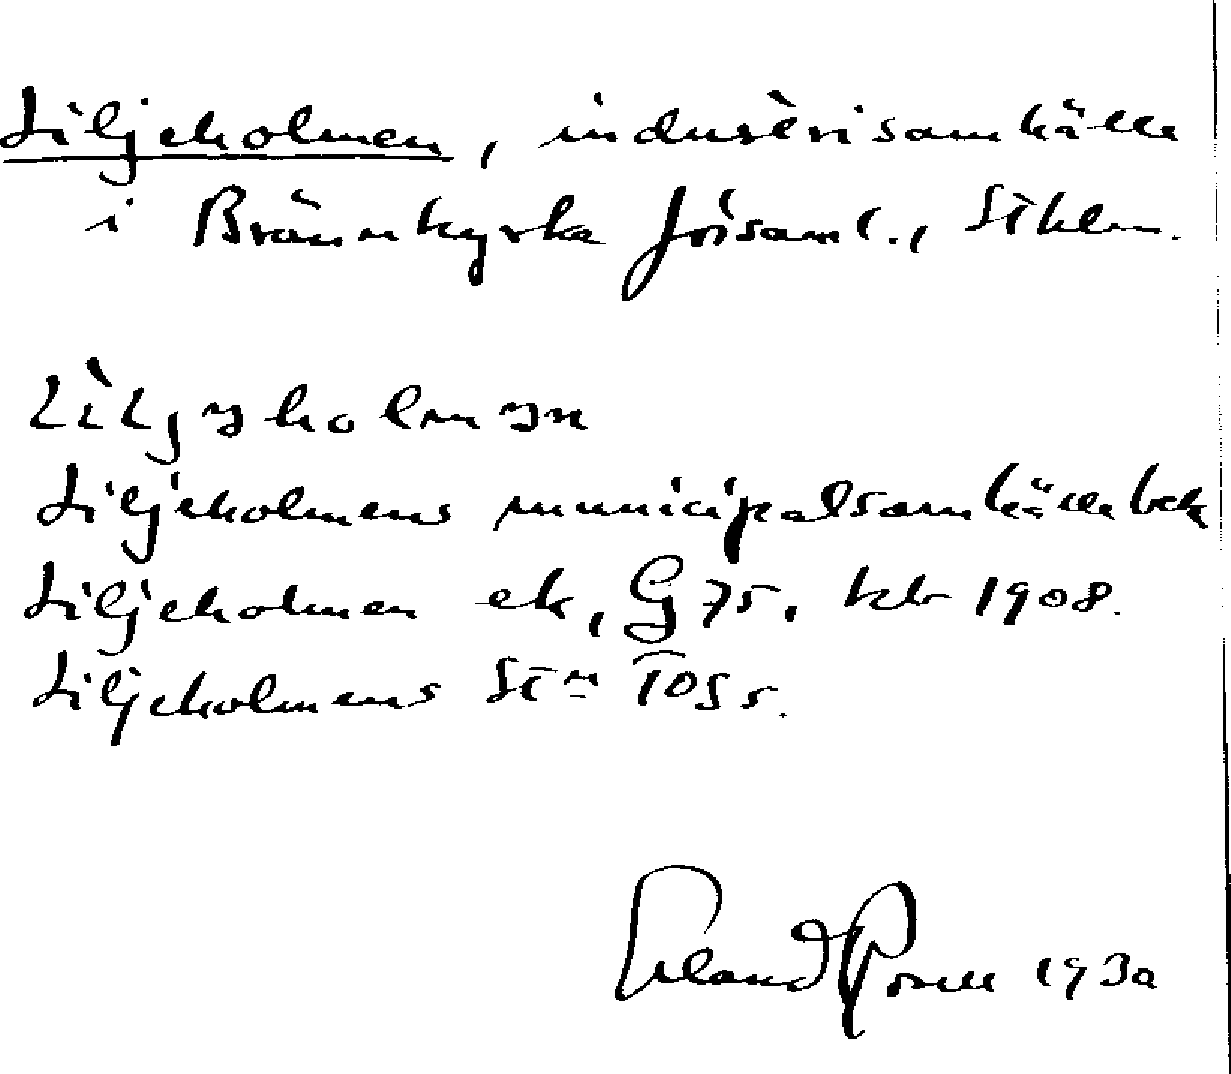 Liljeholmen, industrisamhälle
i Brännkyrka församl., Sthlm.
Liljeholmens municipalsamhälle
Liljeholmen ek, G 75, kb 1908.
Liljeholmens Stn
Erland Rosell 1930